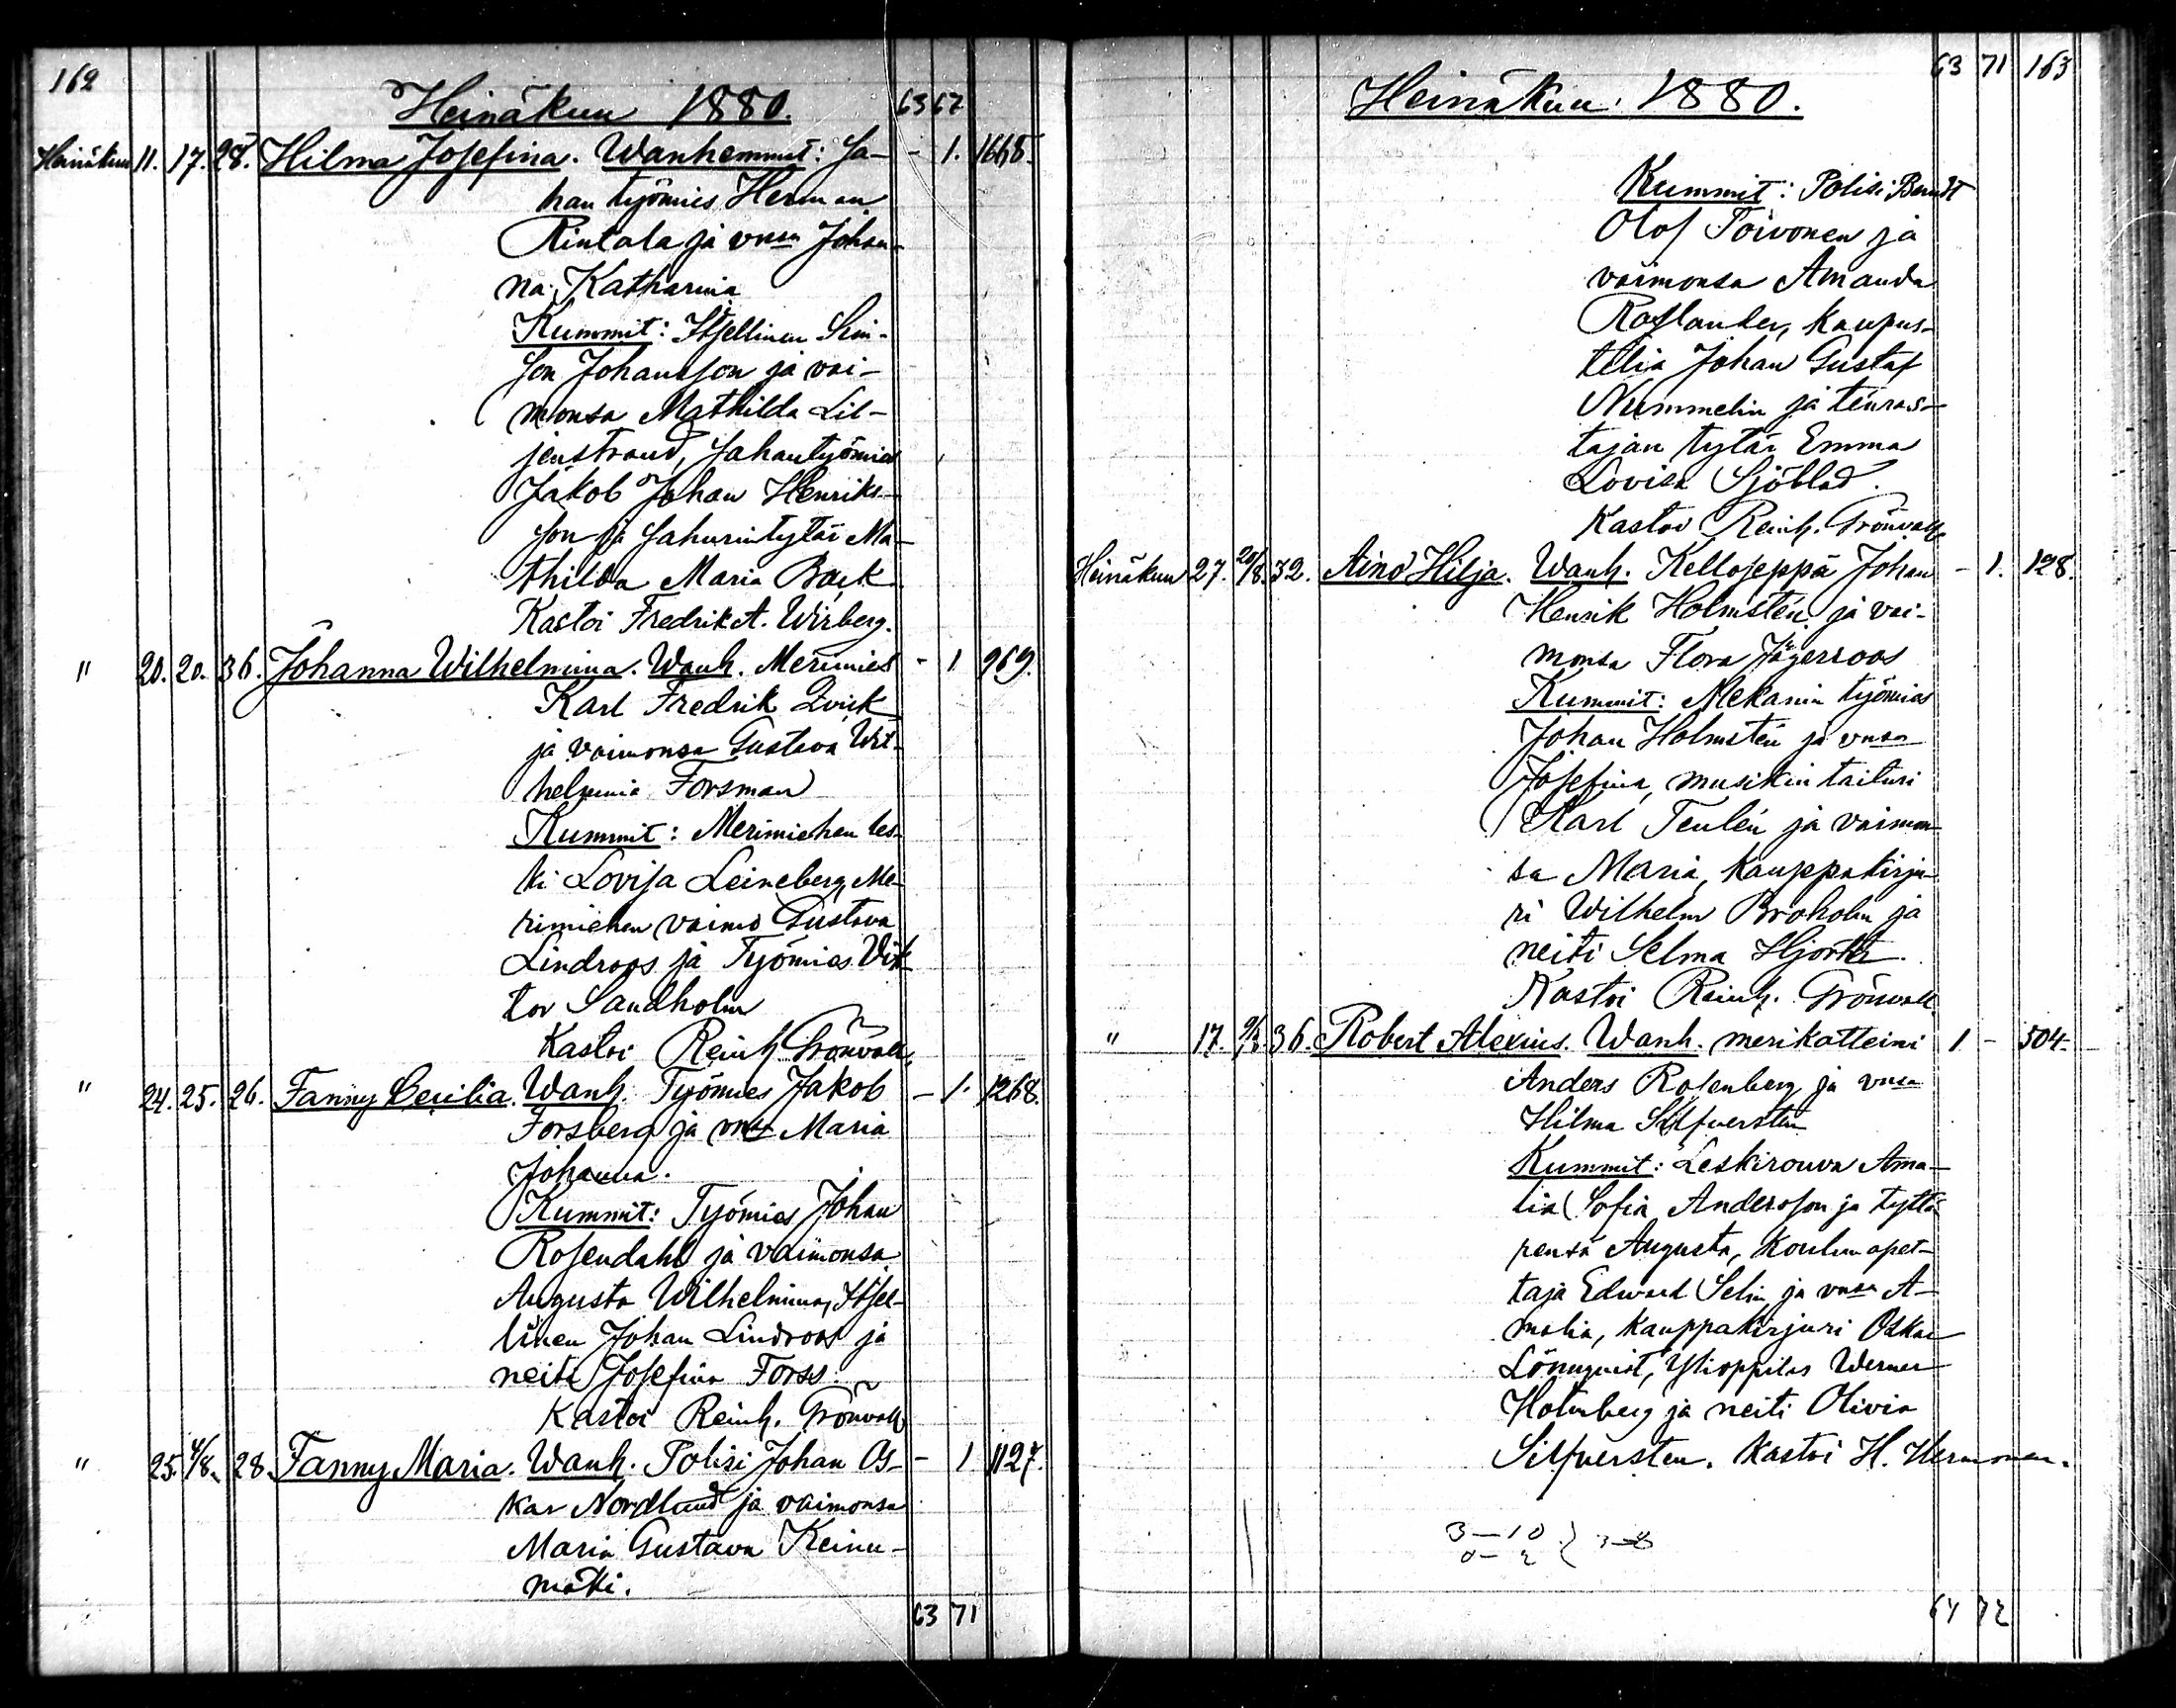 162
Heinäkuu 1880. 63 67
Heinäkuu 11. 17. 28. Hilma Josefina. Wanhemmat: Sa- - 1. 1668.
han työmies Herman
Rintala ja vnsa Johan-
na Katharina
Kummit: Itsellinen Sim-
son Johansson ja vai-
monsa Mathilda Lil-
jenstrand, Sahantyömies
Jakob Johan Henriks-
son ja Sahurintytär Ma-
thilda Maria Bäck.
Kastoi Fredrik A. Wirberg.
" 20. 20. 36. Johanna Wilhelmina. Wanh. Merimies - 1 969.
Karl Fredrik Qvick
ja vaimonsa Gustava Wil-
helmina Forsman
Kummit: Merimiehen les-
ki Lovisa Leineberg, Me-
rimiehen vaimo Gustava
Lindroos ja Työmies Vik-
tor Sandholm
Kastoi Reinh. Grönvall.
" 24. 25. 26. Fanny Cecilia. Wanh. Työmies Jakob - 1. 1268.
Forsberg ja vnsa Maria
Johanna.
Kummit: Työmies Johan
Rosendahl ja vaimonsa
Augusta Wilhelmina, Itsel-
linen Johan Lindroos ja
neiti Josefina Forss.
Kastoi Reinh. Grönvall
" 25. 4/8. 28. Fanny Maria. Wanh. Polisi Johan Os- - 1 1127.
kar Nordlund ja vaimonsa
Maria Gustava Keinu-
mäki.
63 71
63 71 163
Heinäkuu 1880.
Kummit: Polisi Berndt
Olof Toivonen ja
vaimonsa Amanda
Roslander, kaupus-
telia Johan Gustaf
Nummelin ja teuras-
tajan tytär Emma
Lovisa Sjöblad.
Kastoi Reinh. Grönvall
Heinäkuu 27. 20/8. 32. Aino Hilja. Wanh. Kelloseppä Johan - 1. 128.
Henrik Holmstén ja vai-
monsa Flora Jägerroos
Kummit: Mekanin työmies
Johan Holmstén ja vnsa
Josefina, musikin taituri
Karl Teulén ja vaimon-
sa Maria, Kauppakirju-
ri Wilhelm Broholm ja
neiti Selma Hjorth.
Kastoi Reinh. Grönvall.
" 17. 9/8. 36. Robert Alexius. Wanh. merikatteini 1 - 504.
Anders Rosenberg ja vnsa
Hilma Silfversten
Kummit: Leskirouva Ama-
lia Sofia Andersson ja tyttä-
rensä Augusta, Koulunopet-
taja Edward Selin ja vnsa A-
malia, Kauppakirjuri Oskar
Lönnqvist, Ylioppilas Werner
Holmberg ja neiti Olivia
Silfversten. Kastoi H. Hermonen.
3—10
0— 2 } 3—8
64 72